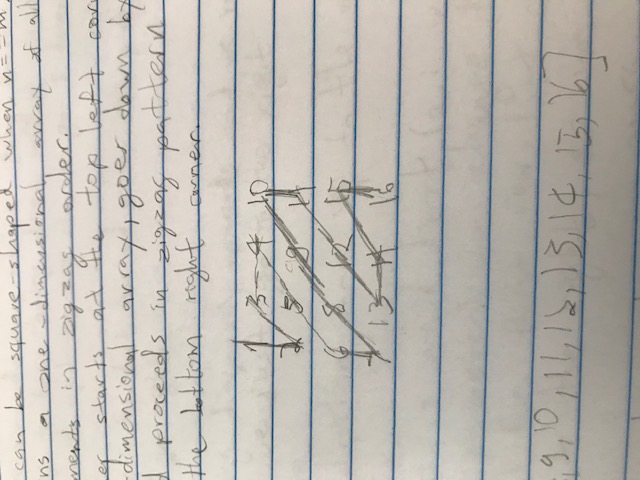 can be square-shaped when n==m
ns a one-dimensional array of all
ments in zigzag order.
er starts at the top left cor
-dimensional array, goes down by
d proceeds in zigzag pattern
the bottom right corner.
1 3 4 10
2 5 9 11
6 8 12 15
7 13 14 16
, 9, 10, 11, 12, 13, 14, 15, 16]